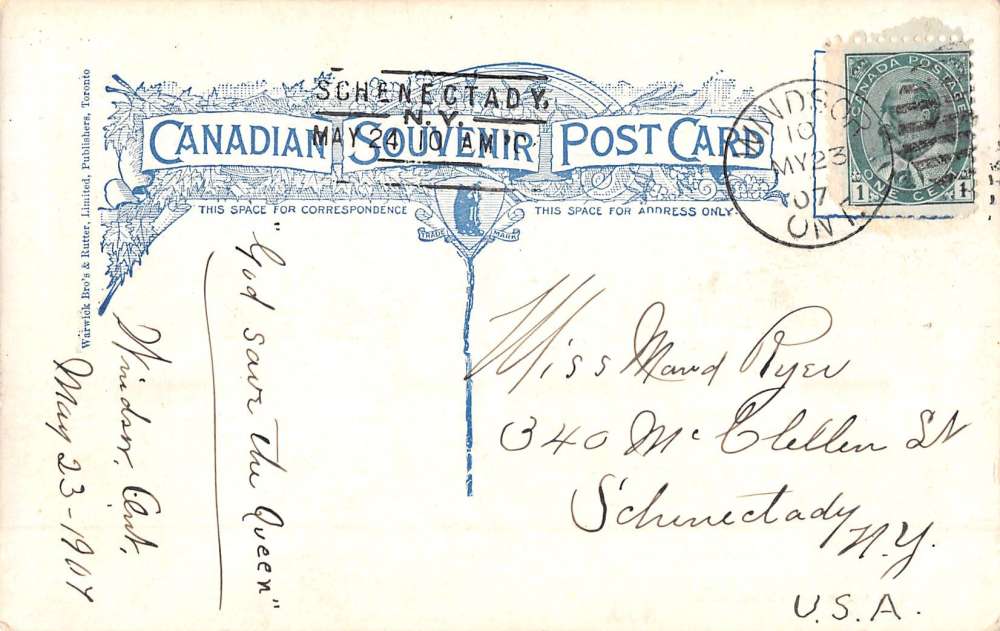 Warwick Bro's & Rutter, Limited, Publishers, Toronto
CANADIAN SOUVENIR POST CARD
SCHENECTADY,
N.Y.
MAY 24 10 AM
THIS SPACE FOR CORRESPONDENCE
THIS SPACE FOR ADDRESS ONLY.
TRADE MARK
WINDSOR
10
MY 23
07
ONT.
CANADA POSTAGE
1 ONE CENT 1
"God save the Queen"
Windsor, Ont.
May 23-1907
Miss Maud Ryer
340 McClellen St
Schenectady
N.Y.
U.S.A.